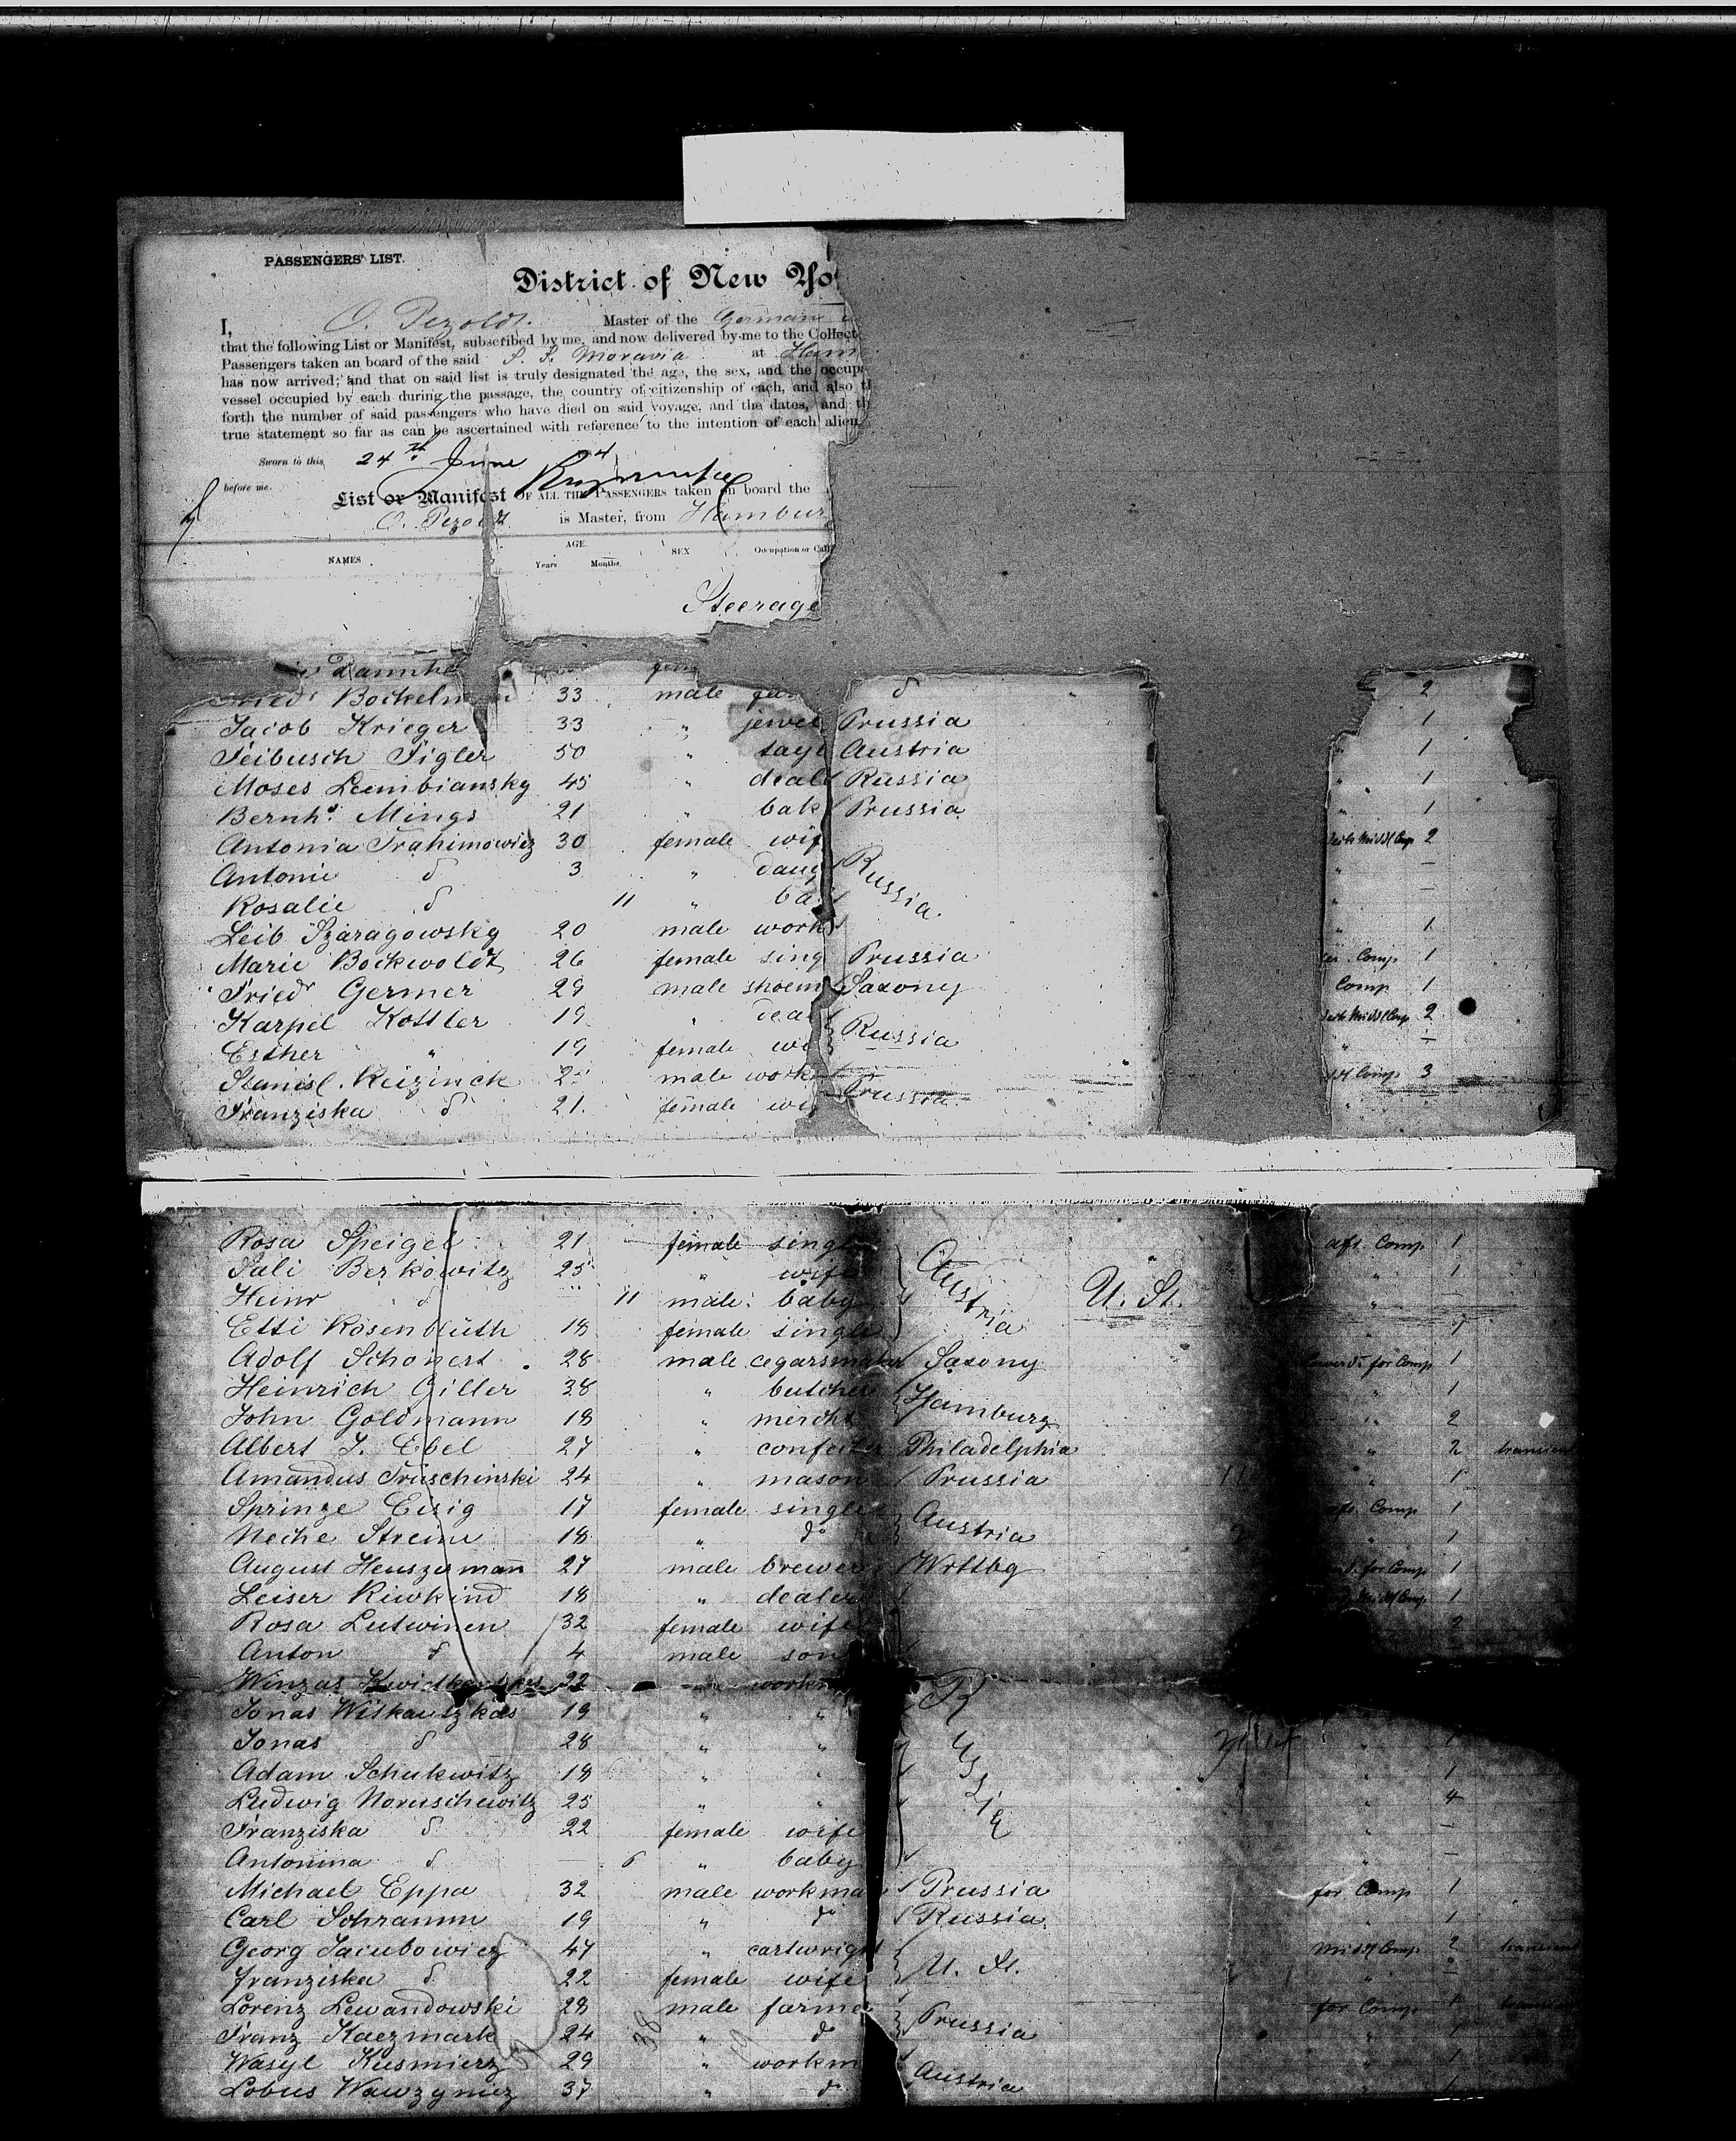 PASSENGERS' LIST.
District of New Yo
I, O. Pezoldt. Master of the German
that the following List or Manifest, subscribed by me, and now delivered by me to the Collect
Passengers taken an board of the said S. S. Moravia at Ham
has now arrived; and that on said list is truly designated the age, the sex, and the occup
vessel occupied by each during the passage, the country of citizenship of each, and also t
forth the number of said passengers who have died on said voyage, and the dates, and th
true statement so far as can be ascertained with reference to the intention of each alien
Sworn to this 24th June
before me.
List or Manifest OF ALL THE PASSENGERS taken on board the
O. Pezoldt is Master, from Hambur
NAMES AGE. Years Months. SEX Occupation or Call
Steerage
Bockelm 33 male do 2
Jacob Krieger 33 " jewel Prussia 1
Feibusch Figler 50 " Austria " 1
Moses Lembiansky 45 " deale Russia " 1
Bernhd. Mings 21 " bak Prussia " 1
Antonia Trahimowicz 30 female wif Middl Comp 2
Antonie do 3 " daug Russia " —
Rosalie do 11 " ba " —
Leib Szaragowsky 20 male work " 1
Marie Bockwoldt 26 female sing Prussia Comp 1
Friedr Germer 29 male shoem Saxony Comp 1
Karpel Kottler 19 " dea Russia Middl Comp 2
Esther " 19 female wi " —
Stanisl. Reizinck male work Prussia Comp 3
Franziska do 21 female wi "
Rosa Speigel 21 female single Austria aft. Comp 1
Sali Berkowitz 25 " wife U. St. " 1
Heinr do 11 male baby " —
Etti Rosenblüth 18 female single " 1
Adolf Schonert 28 male cegarsmaker Saxony for Comp 1
Heinrich Giller 38 " butcher Hamburg " 1
John Goldmann 18 " mercht " 2
Albert J. Ebel 27 " confecter Philadelphia " 2 transient
Amandus Truschinski 24 " mason Prussia " 1
Springe Eisig 17 female single Austria aft. Comp 1
Neche Streim 18 " do " 1
August Heuszmann 27 male brewer Wrttbg for Comp 1
Leiser Riwkind 18 " dealer Middl Comp 1
Rosa Lutwinen 32 female wife 2
Anton do 4 male son
Winzas 22 workm
Jonas Witkautzkas 19 " " Russia
Jonas do 28 " " " 1
Adam Schukwitz 18 " " 1
Ludwig Noruschewitz 25 " " " 4
Franziska do 22 female wife " —
Antonina do — 6 " baby " —
Michael Eppa 32 male workma Prussia for Comp 1
Carl Schramm 19 " do Russia " 1
Georg Jacubowicz 47 " cartwright U. St. Middl Comp 2 transient
Franziska do 22 female wife " —
Lorenz Lewandowski 28 male farmer Prussia for Comp 1
Franz Kaczmark 24 38 " do " 1
Wasyl Kusmierz 29 " workm Austria " 1
Lobus Wawzyniez 37 " do " 1